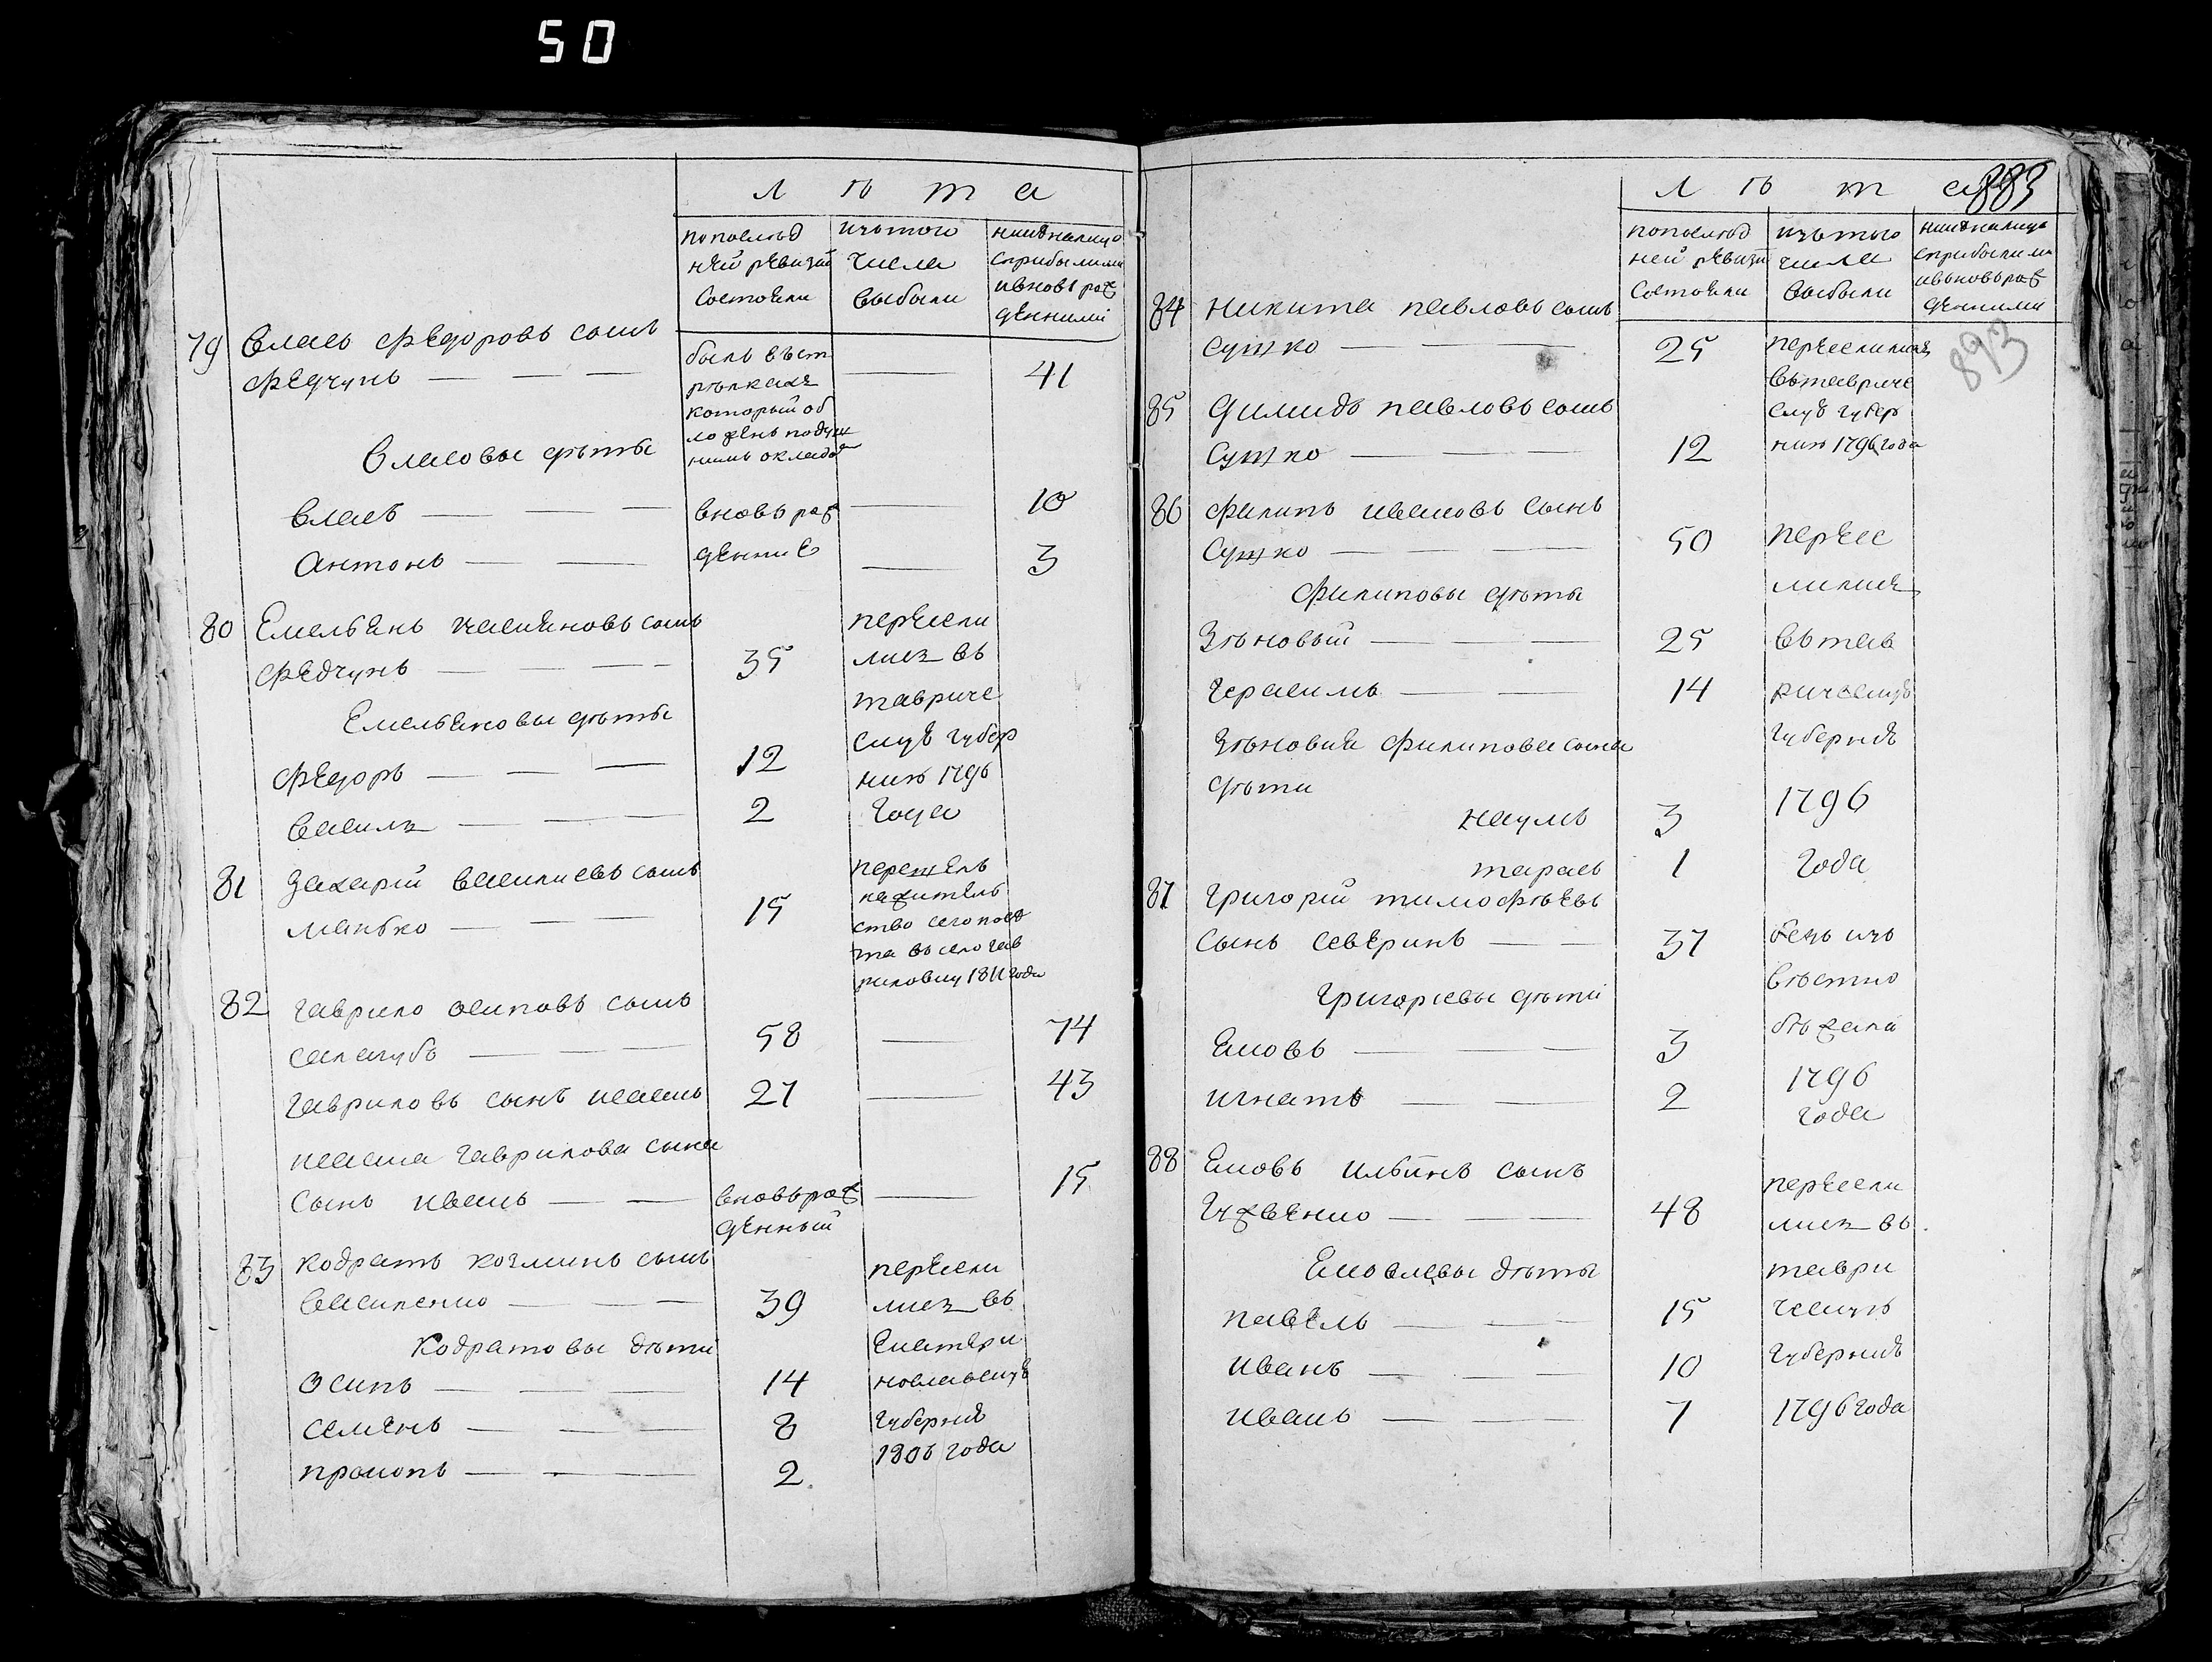 50
Л ѣ т а
попослѣд
ней ревизіи
состояли
изътого
числа
выбыли
нинѣналицо
сприбылими
ивновь рож
денними
79 Власъ Федоровъ сынъ
Федчунъ — — —
былъ въст
рѣлкахъ
который об
ложенъ подуш
нимъ окладом
— 41
Власовы дѣты
Власъ — — — вновь рож — 10
Антонъ — — денние — 3
80 Емельянъ Касияновъ сынъ
Федчунъ — — — 35
пересели
лися въ
тавриче
скую губер
нию 1796
года
Емельяновы дѣты
Федоръ — — — 12
Василь — — — 2
81 Захарій Василиевъ сынъ
Манько — — — 15
перешелъ
нажитель
ство сего повѣ
та въ село Гав
риловку 1811 года
82 Гаврило Осиповъ сынъ
Салагубъ — — — 58 — 74
Гавриловъ сынъ Исаия 27 — 43
Исаиа Гаврилова сына
сынъ Иванъ — — вновьрож — 15
денный
83 Кодратъ Козминъ сынъ
Василенко — — — 39
пересели
лися въ
Екатери
нославскую
губернію
1806 года
Кодратовы дѣти
Осипъ — — — 14
Семенъ — — — 8
Прокопъ — — — 2
Л ѣ т а 883
попослѣд
ней ревизи
состояли
изътого
числа
выбыли
нинѣналицо
сприбылими
ивьновьрож
денними
893
84 Никита Павловъ сынъ
Сушко — — — 25
переселились
вътавриче
скую губер
нию 1796 года
85 Димидъ Павловъ сынъ
Сушко — — — 12
86 Филипъ Ивановъ сынъ
Сушко — — — 50
пересе
лились
вътав
рическую
губернию
1796
года
Филиповы дѣты
Зѣновый — — — 25
Герасимъ — — 14
Зѣновия Филипова сына
дѣти
Наумъ 3
Тарасъ 1
87 Григорій Тимофѣевъ
сынъ Северинъ — — 37
безъ изъ
вѣстно
бѣжали
1796
года
Григориевы дѣти
Яковъ — — — 3
Игнатъ — — 2
88 Яковъ Ильинъ сынъ
Гужвенко — — — 48
пересели
лися въ
таври
ческую
губернию
1796 года
Яковлевы дѣты
Павелъ — — — 15
Иванъ — — — 10
Иванъ — — 7